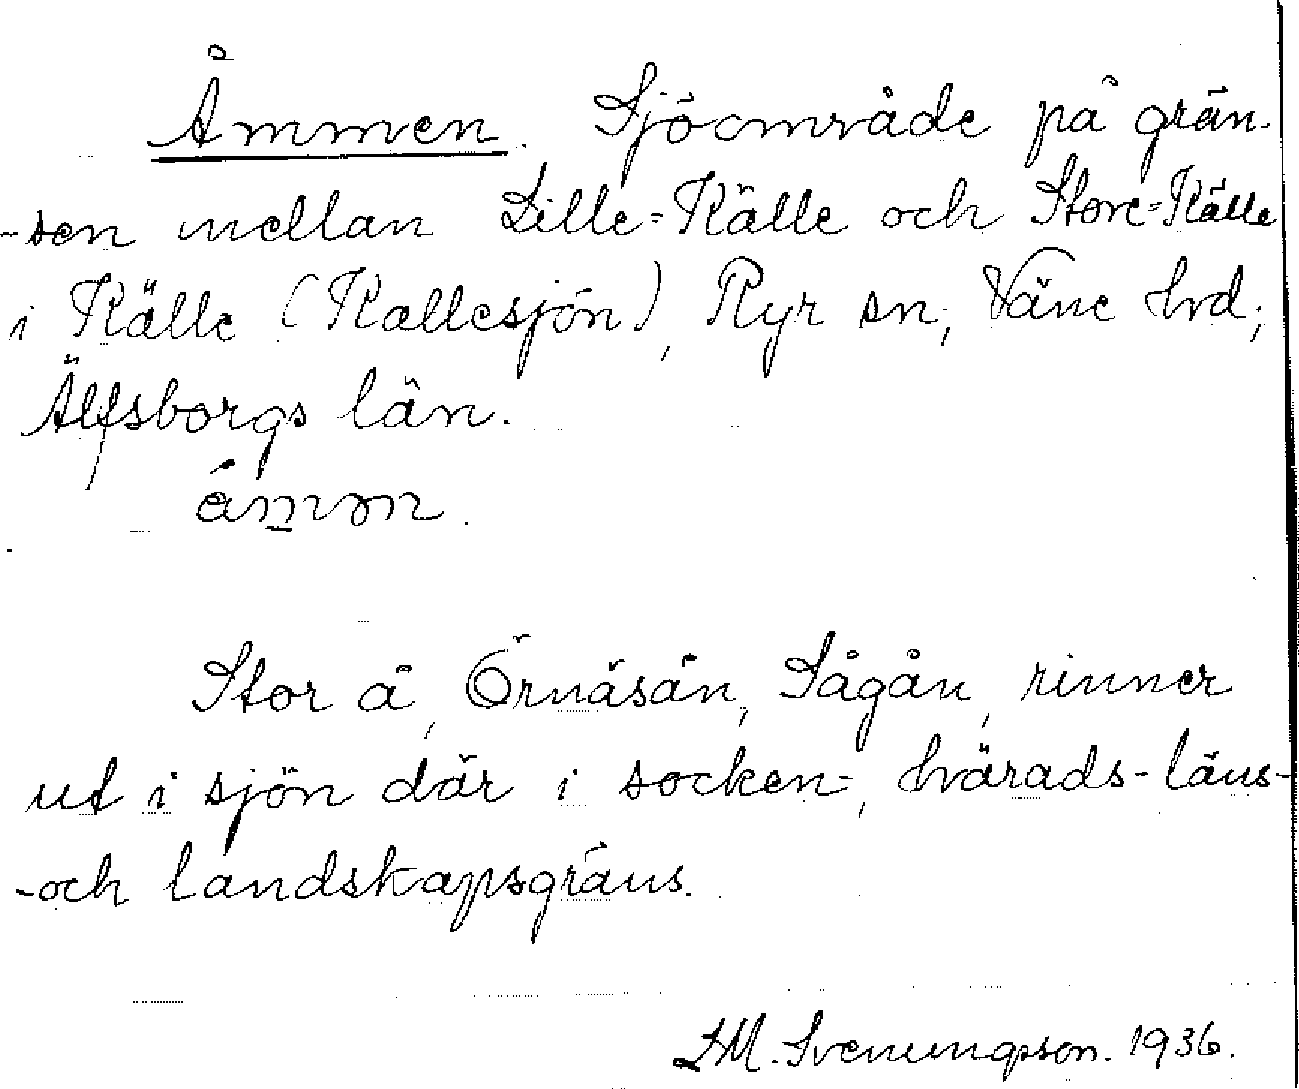 Åmmen. Sjöområde på grän-
-sen mellan Lille-Källe och Store-Källe
i Källe (Kallesjön), Ryr sn, Väne hd;
Älfsborgs län.
Stor å, Örnäsån, Sågån, rinner
ut i sjön där i socken-, härads-läns-
-och landskapsgräns.
Svenungsson. 1936.